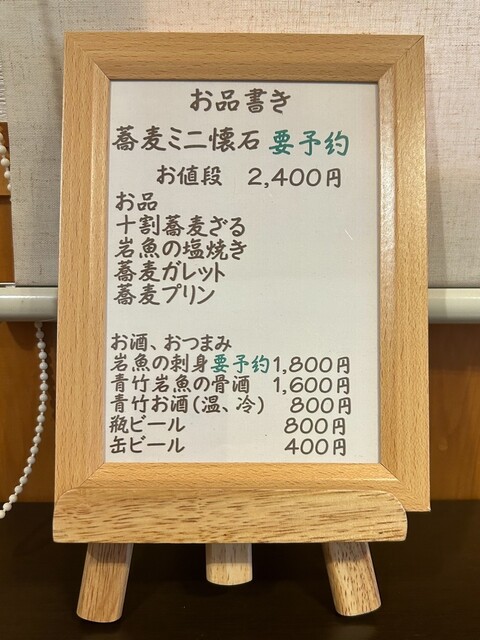 お品書き
蕎麦ミニ懐石 要予約
お値段 2,400円
お品
十割蕎麦ざる
岩魚の塩焼き
蕎麦ガレット
蕎麦プリン
お酒、おつまみ
岩魚の刺身要予約1,800円
青竹岩魚の骨酒 1,600円
青竹お酒(温、冷) 800円
瓶ビール 800円
缶ビール 400円